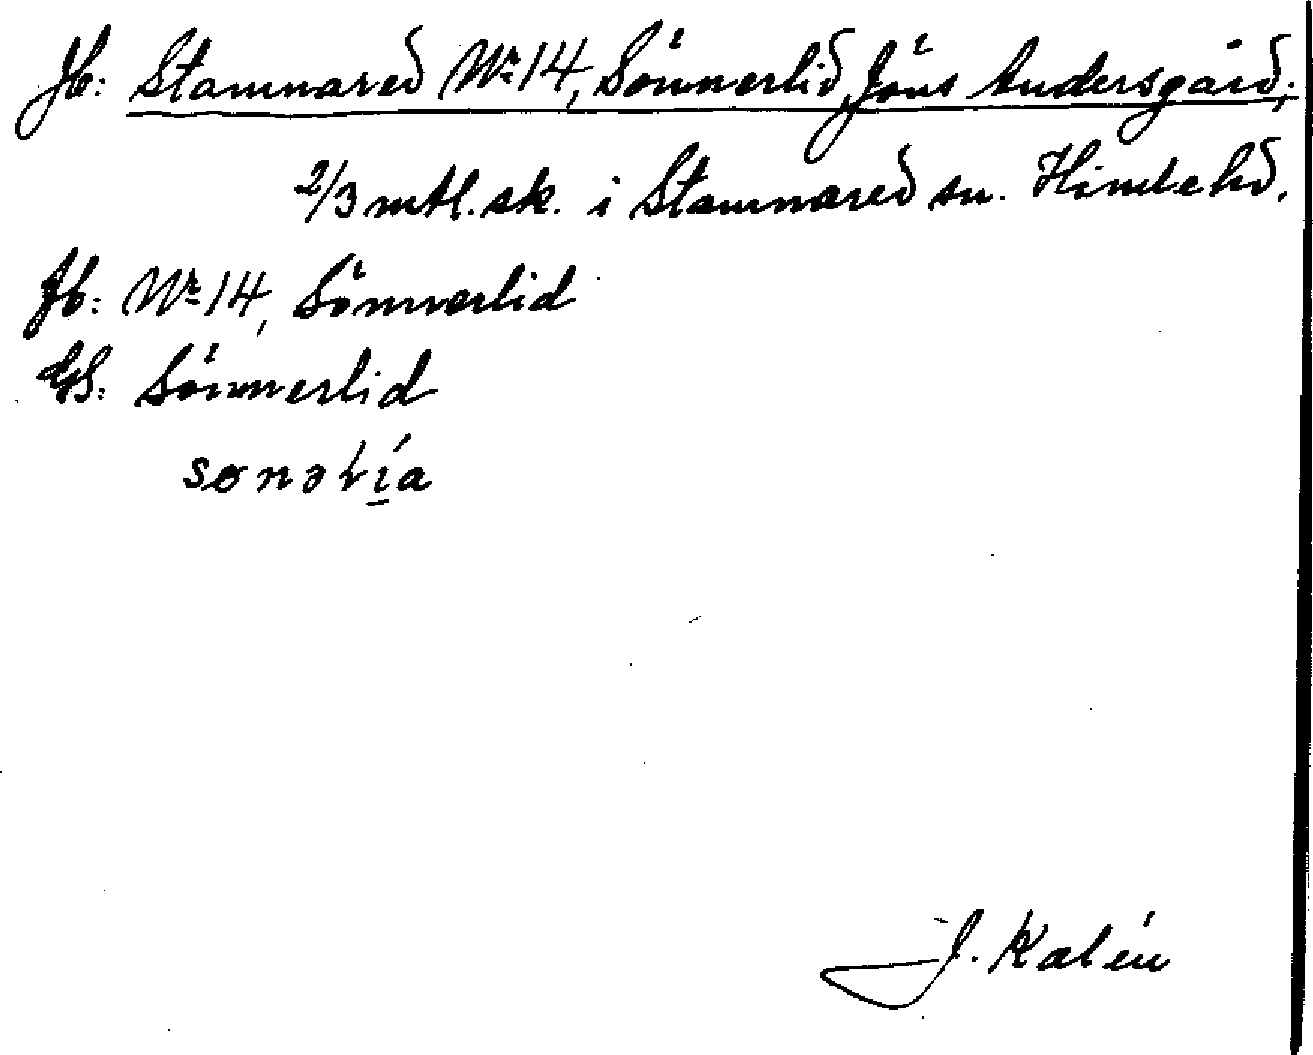 Jb: Stamnared Nr 14, Sönnerlid, Jöns Andersgård,
2/3 mtl. sk. i Stamnared sn. Himle hd.
Jb: Nr 14, Sönnerlid
GS: Sönnerlid
sønəlía
J. Kalén